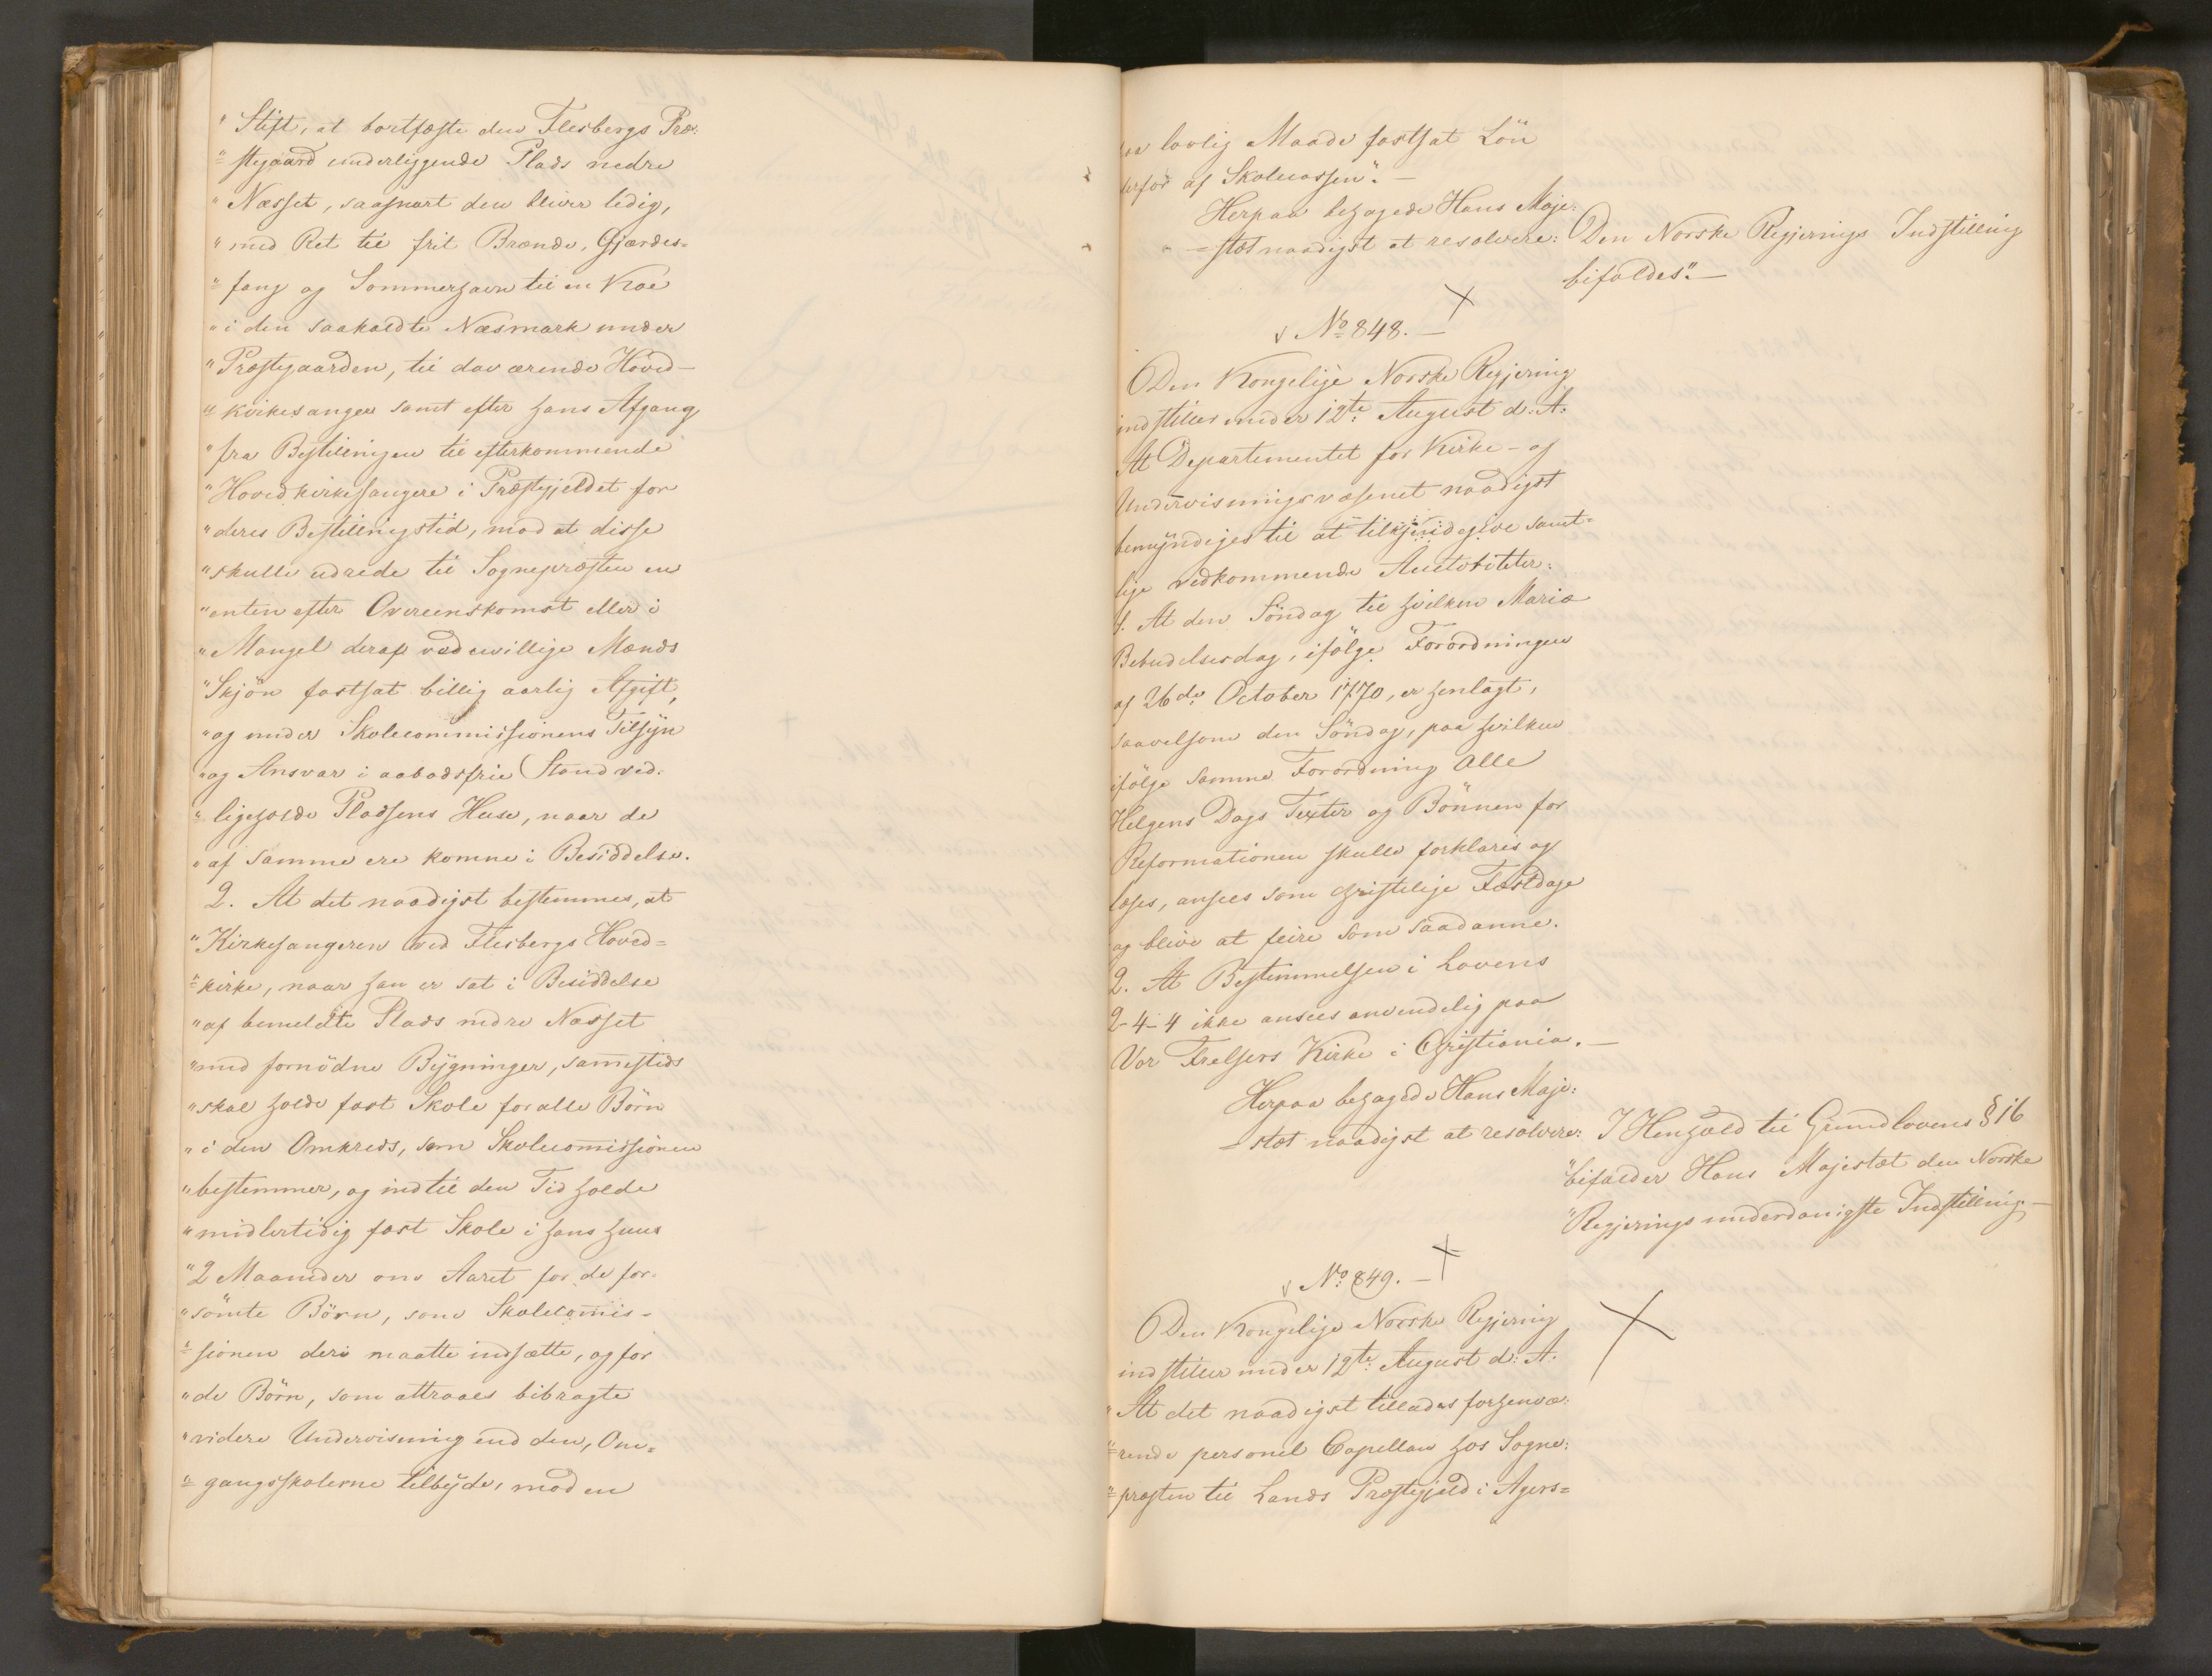 " Stift, at bortfæste den Flesbergs Præ:
"= stegaard underliggende Plads nedre
" Næsset, saasnart den bliver ledig,
" med Ret til frit Brænde, Gjærdes=
"= fang og Sommerhavn til en Koe
" i den saakaldte Næsmark under
" Præstegaarden, til dav ærende Hoved-
"= kirkesanger samt efter hans Afgang
" fra Bestillingen til efterkommende
" Hovedkirkesangere i Præstegjeldet for
" deres Bestillingstid, mod at disse
" skulle udrede til Sognepræsten en
" enten efter Overeenskomst eller i
" Mangel deraf ved uvillige Mænds
" Skjön fastsat billig aarlig Afgift,
" og under Skolecommissionens Tilsyn
" og Ansvar i aabodsfrie Stand ved:
"= ligeholde Pladsens Huse, naar de
" af samme ere komne i Besiddelse.
2. At det naadigst bestemmes, at
" Kirkesangeren ved Flesbergs Hoved=
"= kirke, naar han er sat i Besiddelse
" af bemeldte Plads nedre Næsset
" med fornödne Bygninger, sammesteds
" skal holde fast Skole for alle Börn
" i den Omkreds, som Skolecommissionen
" bestemmer, og indtil den Tid holde
" midlertidig fast Skole i hans Huus
" 2 Maaneder om Aaret for de for-
" sömte Börn, som Skolecommis-
"= sionen deri maatte indsætte, og for
" de Börn, som attraaes bibragte
" videre Underviisning end den, Om=
"= gangsskolerne tilbyde, mod en
paa lovlig Maade fastsat Lön
derfor af Skolecassen". —
Herpaa behagede Hans Maje:
=stæt naadigst at resolvere: Den Norske Regjerings Indstilling
bifaldes". —
No 848. —
Den Kongelige Norske Regjering
indstiller under 12te August d: A:
At Departementet for Kirke- og
Underviisningsvæsenet naadigst
bemyndiges til at tilkjendegive samt=
lige vedkommende Auctoriteter:
1. At den Söndag til hvilken Mariæ
Bebudelsesdag, ifölge Forordningen
af 26de October 1770, er henlagt,
saavelsom den Söndag, paa hvilken
ifölge samme Forordning Alle
Helgens Dags Texter og Bönnen for
Reformationen skulle forklares og
læses, ansees som christelige Festdage
og blive at feire som saadanne.
2. At Bestemmelsen i Lovens
2-4-4 ikke ansees anvendelig paa
Vor Frelsers Kirke i Christiania. —
Herpaa behagede Hans Maje:
=stæt naadigst at resolvere: I Henhold til Grundlovens § 16
" bifalder Hans Majestæt den Norske
" Regjerings underdanigste Indstilling. —
No 849. —
Den Kongelige Norske Regjering
indstiller under 12te August d: A:
" At det naadigst tillades forhenvæ:
"= rende personel Capellan hos Sogne:
"= præsten til Lands Præstegjeld i Agers=